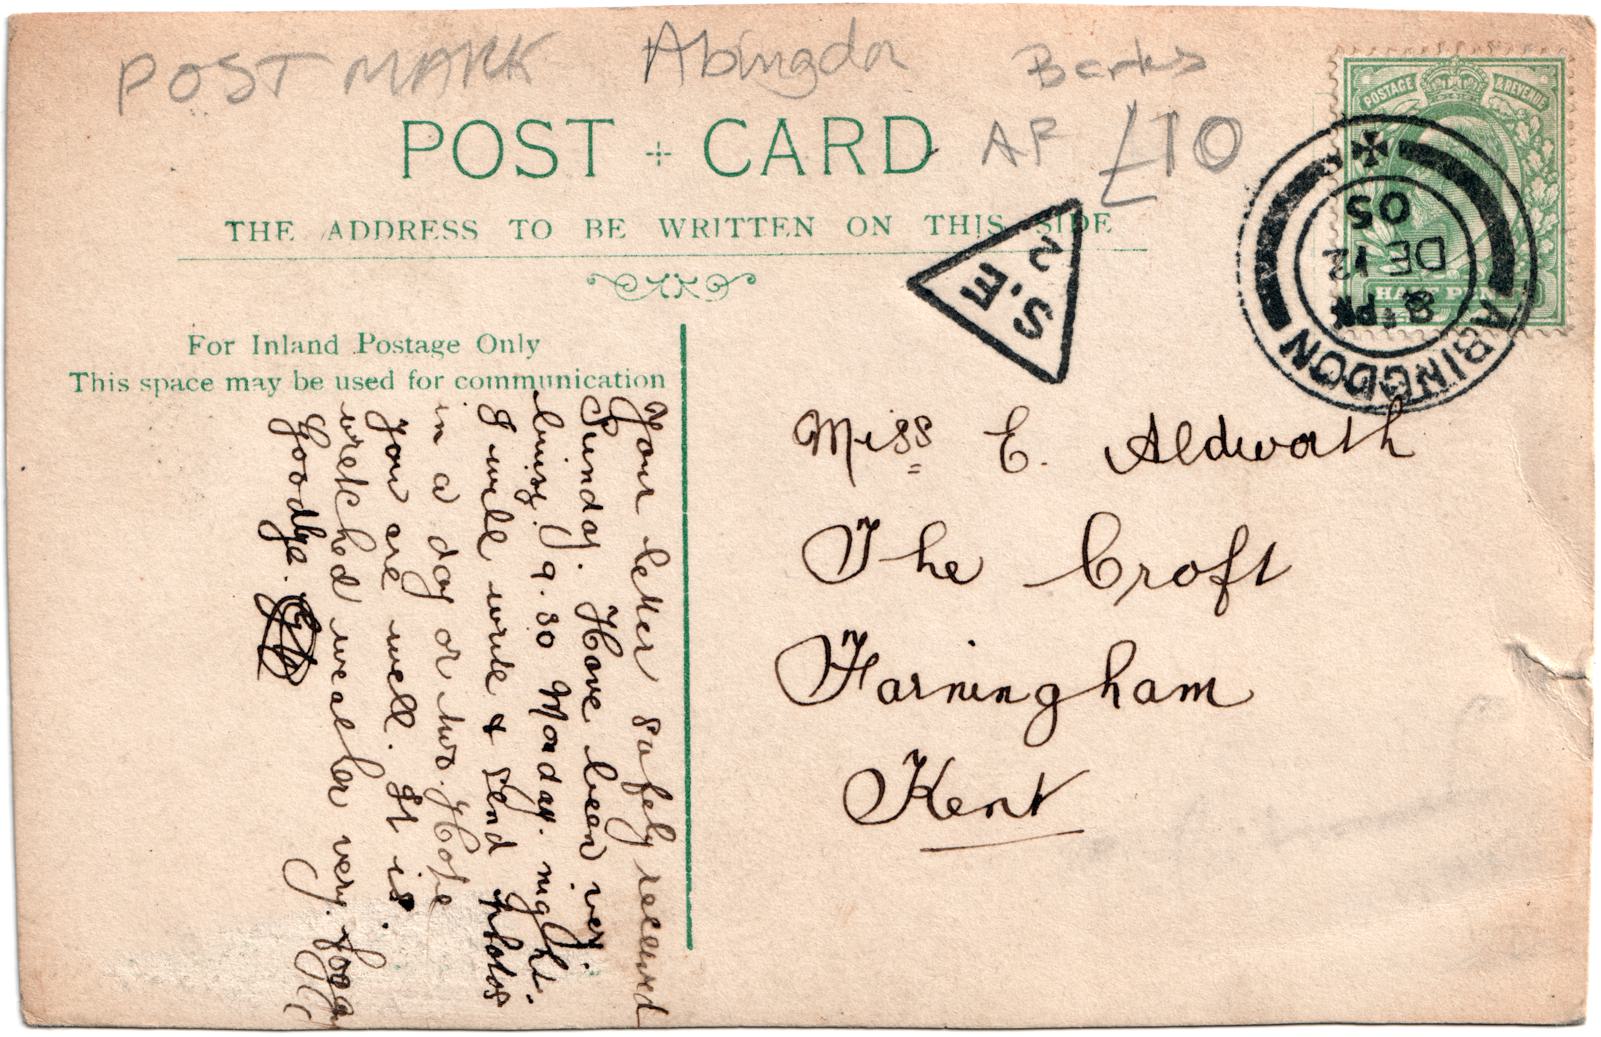 POST MARK Abingdon Berks
POST CARD AF £10
THE ADDRESS TO BE WRITTEN ON THIS SIDE
POSTAGE & REVENUE
HALF PENNY
ABINGDON
8 PM
DE 12
05
S.E
2
For Inland Postage Only
This space may be used for communication
Your letter safely received
Sunday. Have been very
busy. 9.30 Monday night.
I will write & send photos
in a day or two. Hope
you are well. It is
wretched weather very foggy
Goodbye.
Miss E. Aldworth
The Croft
Farningham
Kent